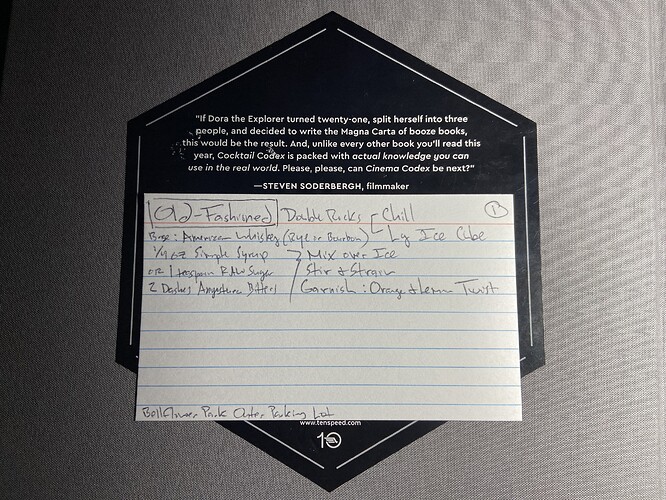 "If Dora the Explorer turned twenty-one, split herself into three
people, and decided to write the Magna Carta of booze books,
this would be the result. And, unlike every other book you'll read this
year, Cocktail Codex is packed with actual knowledge you can
use in the real world. Please, please, can Cinema Codex be next?"
—STEVEN SODERBERGH, filmmaker
Old-Fashioned Double Rocks Chill B
Base: American Whiskey (Rye or Bourbon) Lg Ice Cube
1/4 oz Simple Syrup Mix over Ice
or 1 teaspoon Raw Sugar Stir & Strain
2 Dashes Angostura Bitters Garnish: Orange & Lemon Twist
Park Outer Parking Lot
www.tenspeed.com
10